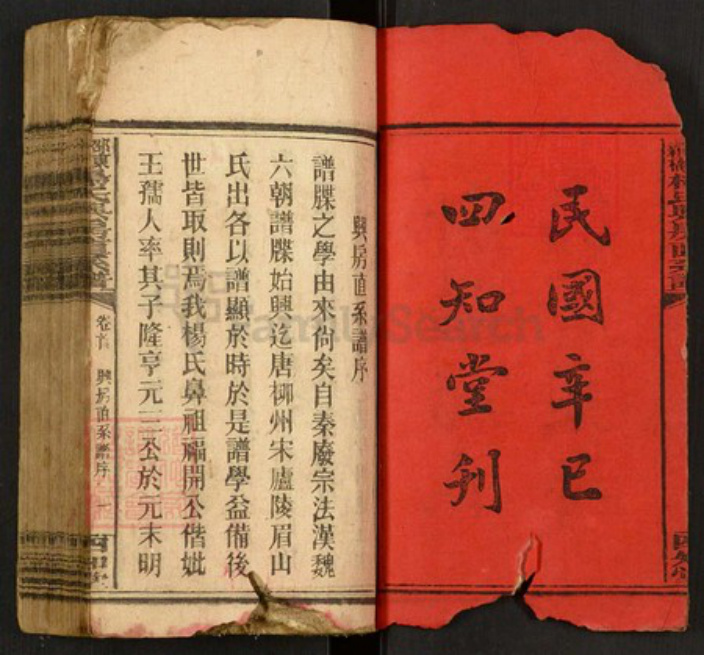 民國辛巳
四知堂刊
興房直系譜序
譜牒之學由來尙矣自秦廢宗法漢魏
六朝譜牒始興迄唐柳州宋廬陵眉山
氏出各以譜顯於時於是譜學益備後
世皆取則焉我楊氏鼻祖福開公偕妣
王孺人率其子隆亨元三公於元末明
卷首 興房直系譜序 一
FamilySearch